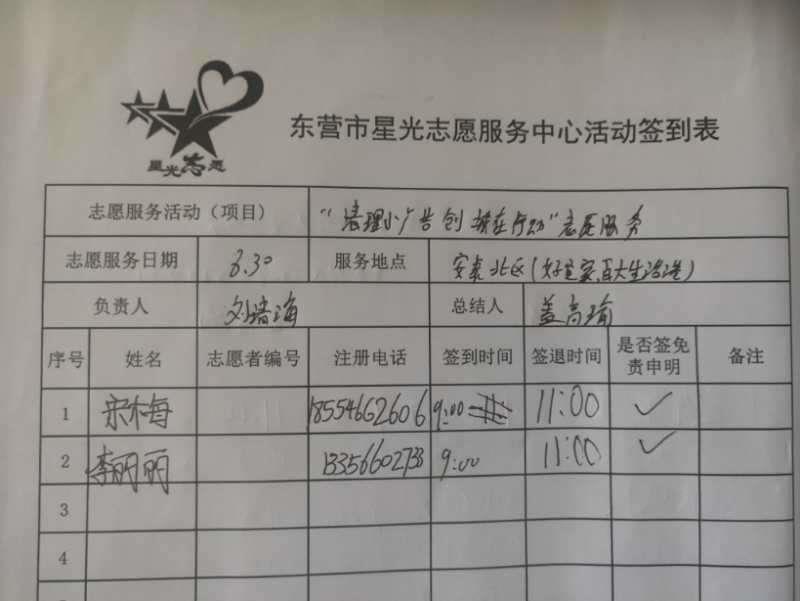 星光志愿
东营市星光志愿服务中心活动签到表
志愿服务活动（项目） “清理小广告 创城在行动”志愿服务
志愿服务日期 8.30 服务地点 安泰北区（好宜家百大生活港）
负责人 刘 海 总结人 盖高瑜
序号 姓名 志愿者编号 注册电话 签到时间 签退时间 是否签免责申明 备注
1 宋梅 18554662606 9:00 11:00 ✓
2 李丽丽 13356602738 9:00 11:00 ✓
3
4